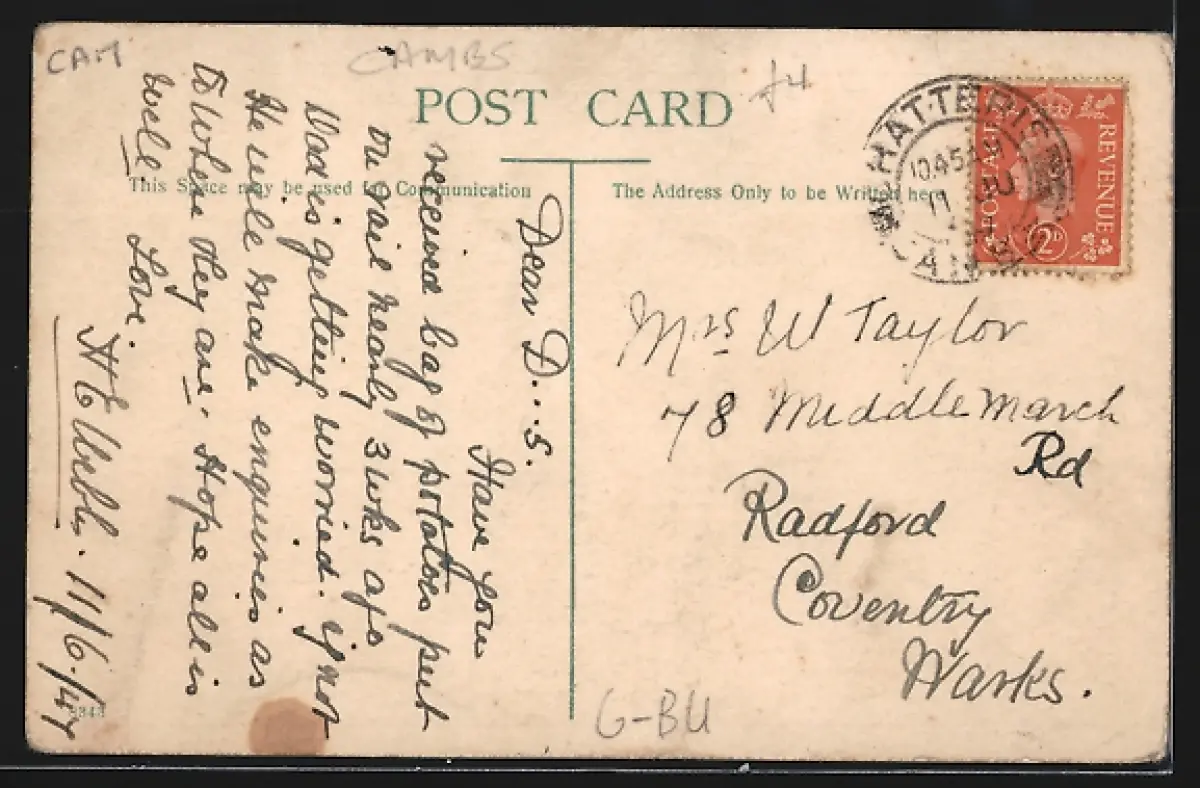 CAM
CAMBS
£4
POST CARD
This Space may be used for Communication
The Address Only to be Written here
CHATTERIS
10.45 AM
11 JU
CAMBS
POSTAGE
REVENUE
2D
Dear D...s.
Have you
received bag of potatoes put
on rail nearly 3 wks ago
Dad is getting worried. if not
He will make enquiries as
to where they are. Hope all is
well. Love.
11/6/47
Mrs W Taylor
78 Middlemarch
Rd
Radford
Coventry
Warks.
G-BU